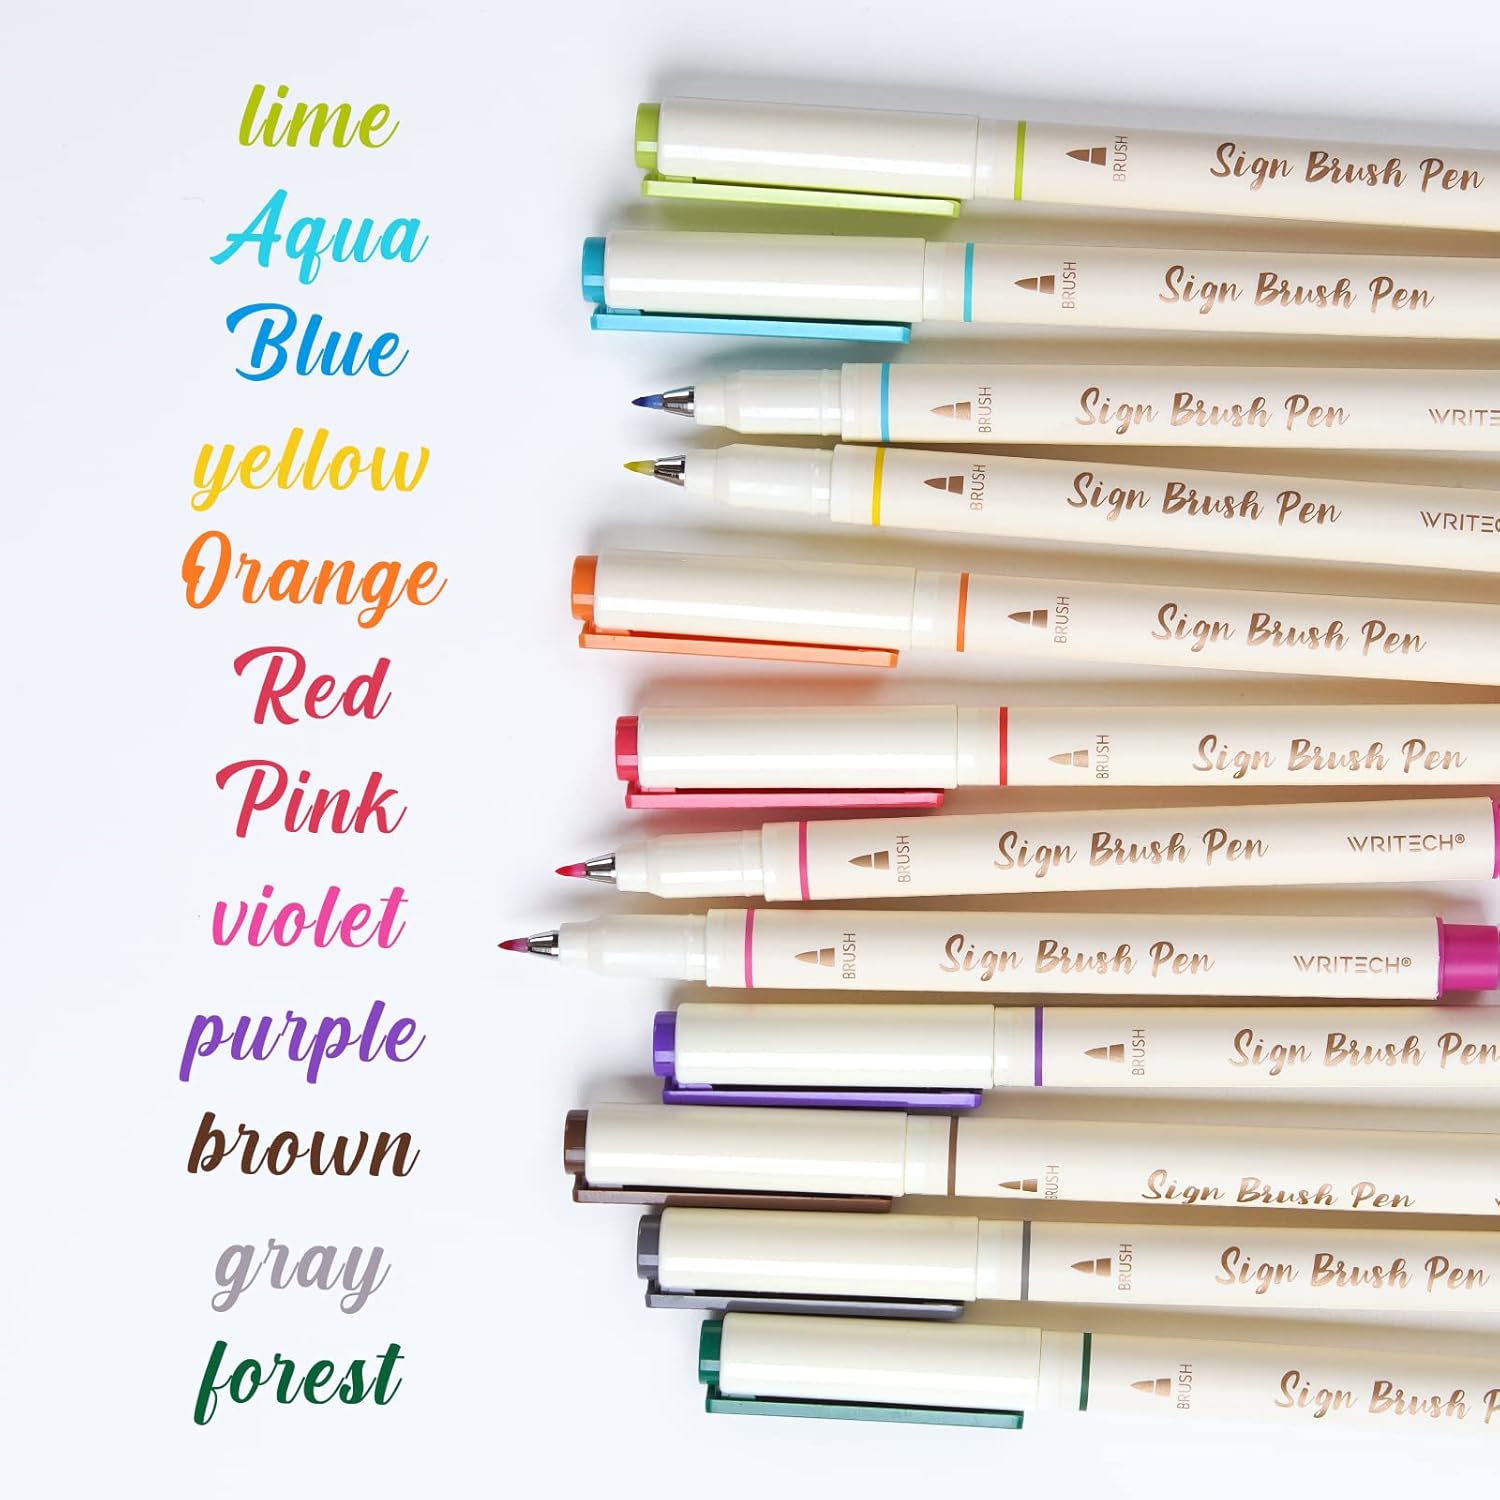 lime
BRUSH Sign Brush Pen
Aqua
BRUSH Sign Brush Pen
Blue
BRUSH Sign Brush Pen WRITE
yellow
BRUSH Sign Brush Pen WRITE
Orange
BRUSH Sign Brush Pen
Red
BRUSH Sign Brush Pen
Pink
BRUSH Sign Brush Pen WRITECH®
violet
BRUSH Sign Brush Pen WRITECH®
purple
BRUSH Sign Brush Pen
brown
BRUSH Sign Brush Pen
gray
BRUSH Sign Brush Pen
forest
BRUSH Sign Brush P